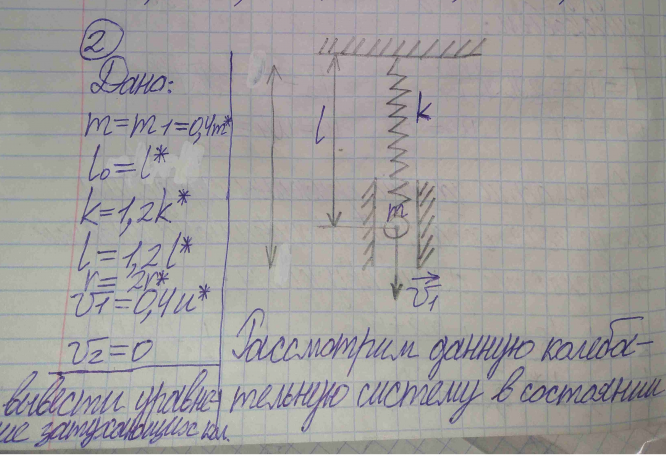 2
Дано:
m=m1=0,4m*
l₀=l*
k=1,2k*
l=1,2l*
r=2r*
v1=0,4u*
v2=0
вывести уравне-
ние затухающих кол.
l
k
m
v1
Рассмотрим данную колеба-
тельную систему в состоянии